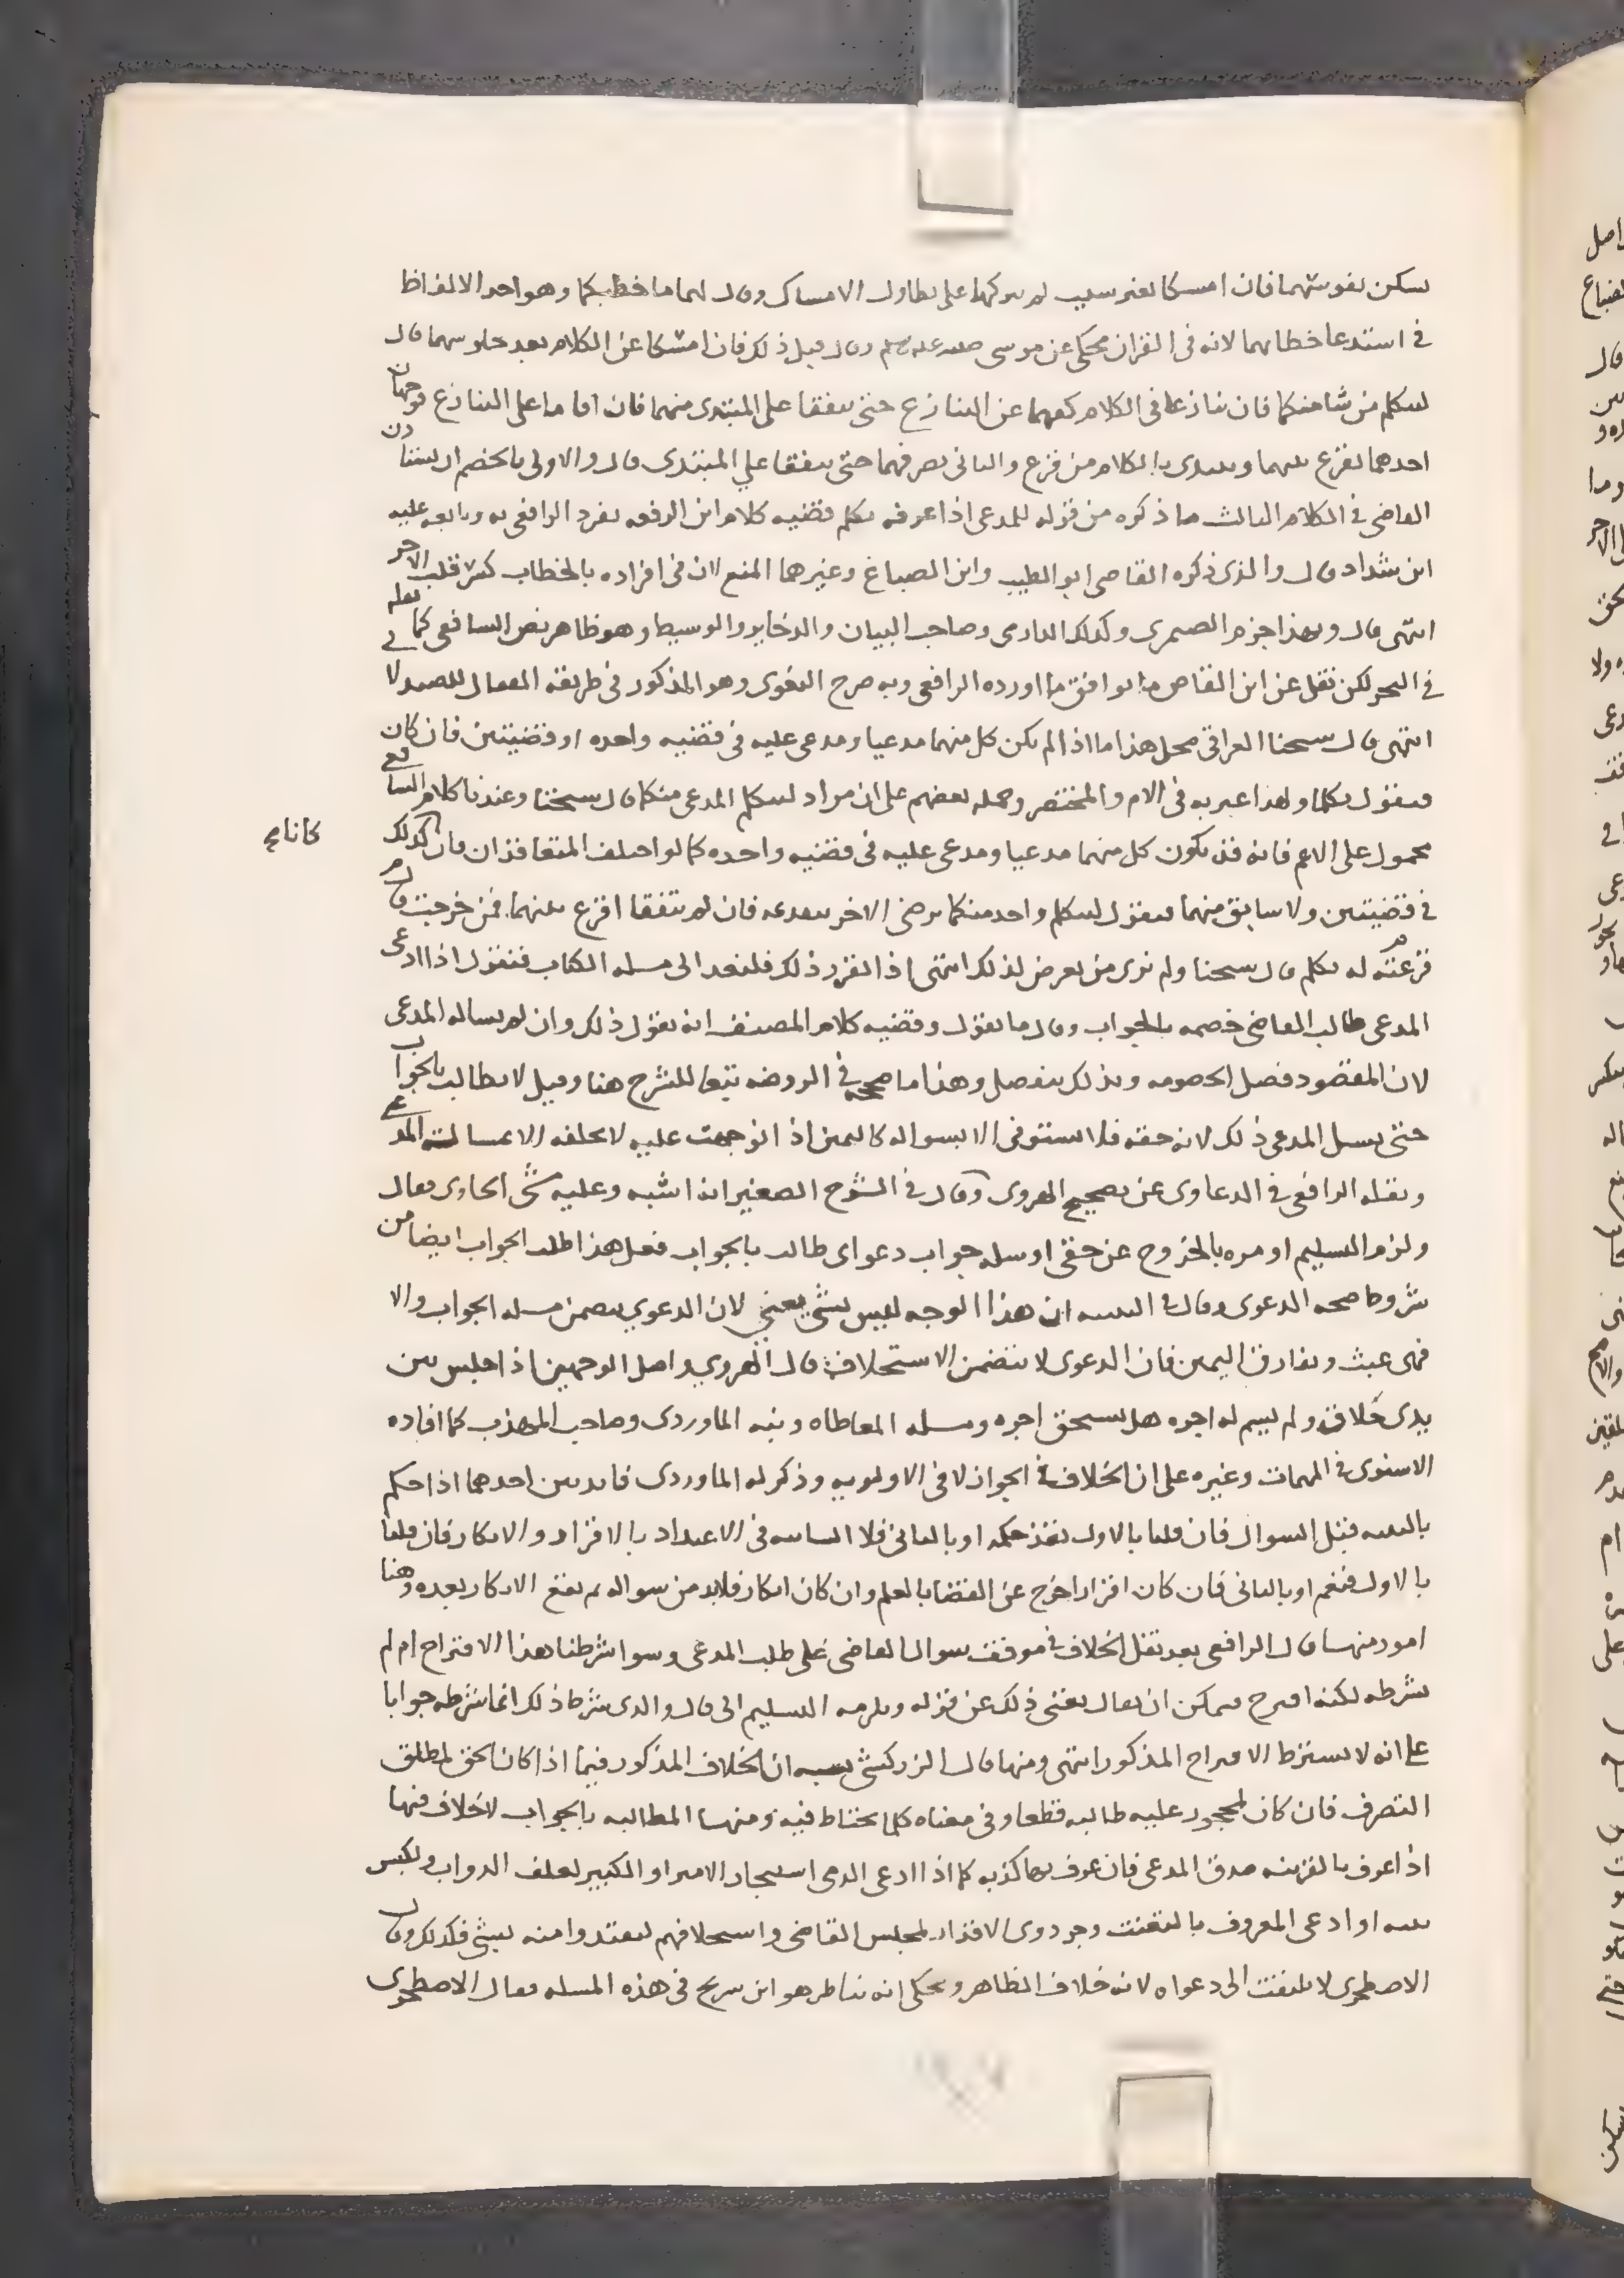 سكن نفوسهما فان امسكا لغير سبب لم يتركهما على تطاول الامساك وقال لهما ما خطبكما وهو احد الالفاظ
في استدعا خطابهما لانه في القران محكي عن موسى صلى الله عليه وسلم وقال قبل ذلك فان امسكا عن الكلام بعد جلوسهما قال
ليتكلم من شا منكما فان تنازعا في الكلام كفهما عن التنازع حتى يتفقا على المبتدى منهما فان اقاما على التنازع فوجهان
احدهما يقرع بينهما ويبتدى بالكلام من قرع والثاني يصرفهما حتى يتفقا علي المبتدى قال والاولى بالخصم ان يستاذن
القاضي في الكلام الثالث ما ذكره من قوله للمدعى اذا عرفه تكلم قضيه كلام ابن الرفعه تفرد الرافعي به وتابعه عليه
ابن شداد قال والذي ذكره القاضي ابو الطيب وابن الصباغ وغيرهما المنع لان في افراده بالخطاب كسر قلب الاخر
انتهى قال وبهذا جزم الصيمري وكذلك الدارمي وصاحب البيان والذخاير والوسيط وهو ظاهر نص الشافعي كما نقله
في البحر لكن نقل عن ابن القاص ما يوافق ما اورده الرافعي وبه صرح البغوى وهو المذكور في طريقه القفال للصيدلا
انتهى قال شيخنا العراقي محل هذا ما اذا لم يكن كل منهما مدعيا ومدعى عليه في قضيه واحده او قضيتين فان كان
فيقول تكلما ولهذا عبر به في الام والمختصر وحمله بعضهم على ان مراد ليتكلم المدعي منكما قال شيخنا وعندنا كلام الشافعي
محمول على الاعم فانه قد يكون كل منهما مدعيا ومدعى عليه في قضيه واحده كما لو اختلف المتعاقدان وان كان كذلك
في قضيتين ولا سابق منهما فيقول ليتكلم واحد منكما برضى الاخر بتقدمه فان لم يتفقا اقرع بينهما فمن خرجت
قرعته له تكلم قال شيخنا ولم نرى من تعرض لذلك انتهى اذا تقرر ذلك فلنعد الى مسله الكتاب فنقول اذا ادعى
المدعى طالب القاضي خصمه بالجواب وقال ما تقول وقضيه كلام المصنف انه يقول ذلك وان لم يساله المدعى
لان المقصود فصل الخصومه وبذلك ينفصل وهذا ما صححه في الروضه تبعا للشرح هنا وقيل لا يطالب بالجواب
حتى يسل المدعى ذلك لانه حقه فلا يستوفى الا بسواله كاليمين اذا توجهت عليه لا يحلفه الا بمسالة المدعي
ونقله الرافعي في الدعاوى عن تصحيح الهروى وقال في الشرح الصغير انه اشبه وعليه مشى الحاوى فقال
ولزم التسليم او مره بالخروج عن حقى او سله جواب دعواى طالب بالجواب فجعل هذا طلب الجواب ايضا من
شروط صحه الدعوى وقال في ان هذا الوجه ليس بشي يعني لان الدعوي تتضمن مسله الجواب والا
فهى عبث وتفارق اليمين فان الدعوى لا تتضمن الاستحلاف قال الهروي واصل الوجهين اذا جلس بين
يدى حلاق ولم يسم له اجره هل يستحق اجره ومسله المعاطاه ونبه الماوردى وصاحب المهذب كما افاده
الاسنوى في المهمات وغيره على ان الخلاف في الجواز لا في الاولويه وذكر له الماوردى فايدتين احدهما اذا حكم
بالبينه قبل السوال فان قلنا بالاول نفذ حكمه او بالثاني فلا الثانيه في الاعتداد بالاقرار والانكار فان قلنا
بالاول فنعم او بالثاني فان كان اقرارا خرج عن القضا بالعلم وان كان انكارا فلابد من سواله ثم يقع الانكار بعده وهنا
امور منها قال الرافعي بعد نقل الخلاف في موقف سوال القاضي على طلب المدعي وسوا شرطنا هذا الاقتراح ام لم
نشرطه لكنه اقترح فيمكن ان يقال يغنى ذلك عن قوله ويلزمه التسليم الى قال والذى شرط ذلك انما شرطه جوابا
على انه لا يشترط الاقتراح المذكور انتهى ومنها قال الزركشي يشبه ان الخلاف المذكور فيما اذا كان الحق لمطلق
التصرف فان كان لمحجور عليه طالبه قطعا وفي معناه كلما يحتاط فيه ومنها المطالبه بالجواب لا خلاف فيها
اذا عرف بالقرينه صدق المدعي فان عرف بها كذبه كما اذا ادعى الدمى استيجار الامير او الكبير لعلف الدواب وكنس
بيته او ادعى المعروف بالتعنت وجر ذوى الاقدار لمجلس القاضي واستحلافهم ليفتدوا منه بشي فكذلك وقال
الاصطخرى لا يلتفت الى دعواه لانه خلاف الظاهر ويحكى انه تناظر هو ابن سريج في هذه المسله فقال الاصطخرى